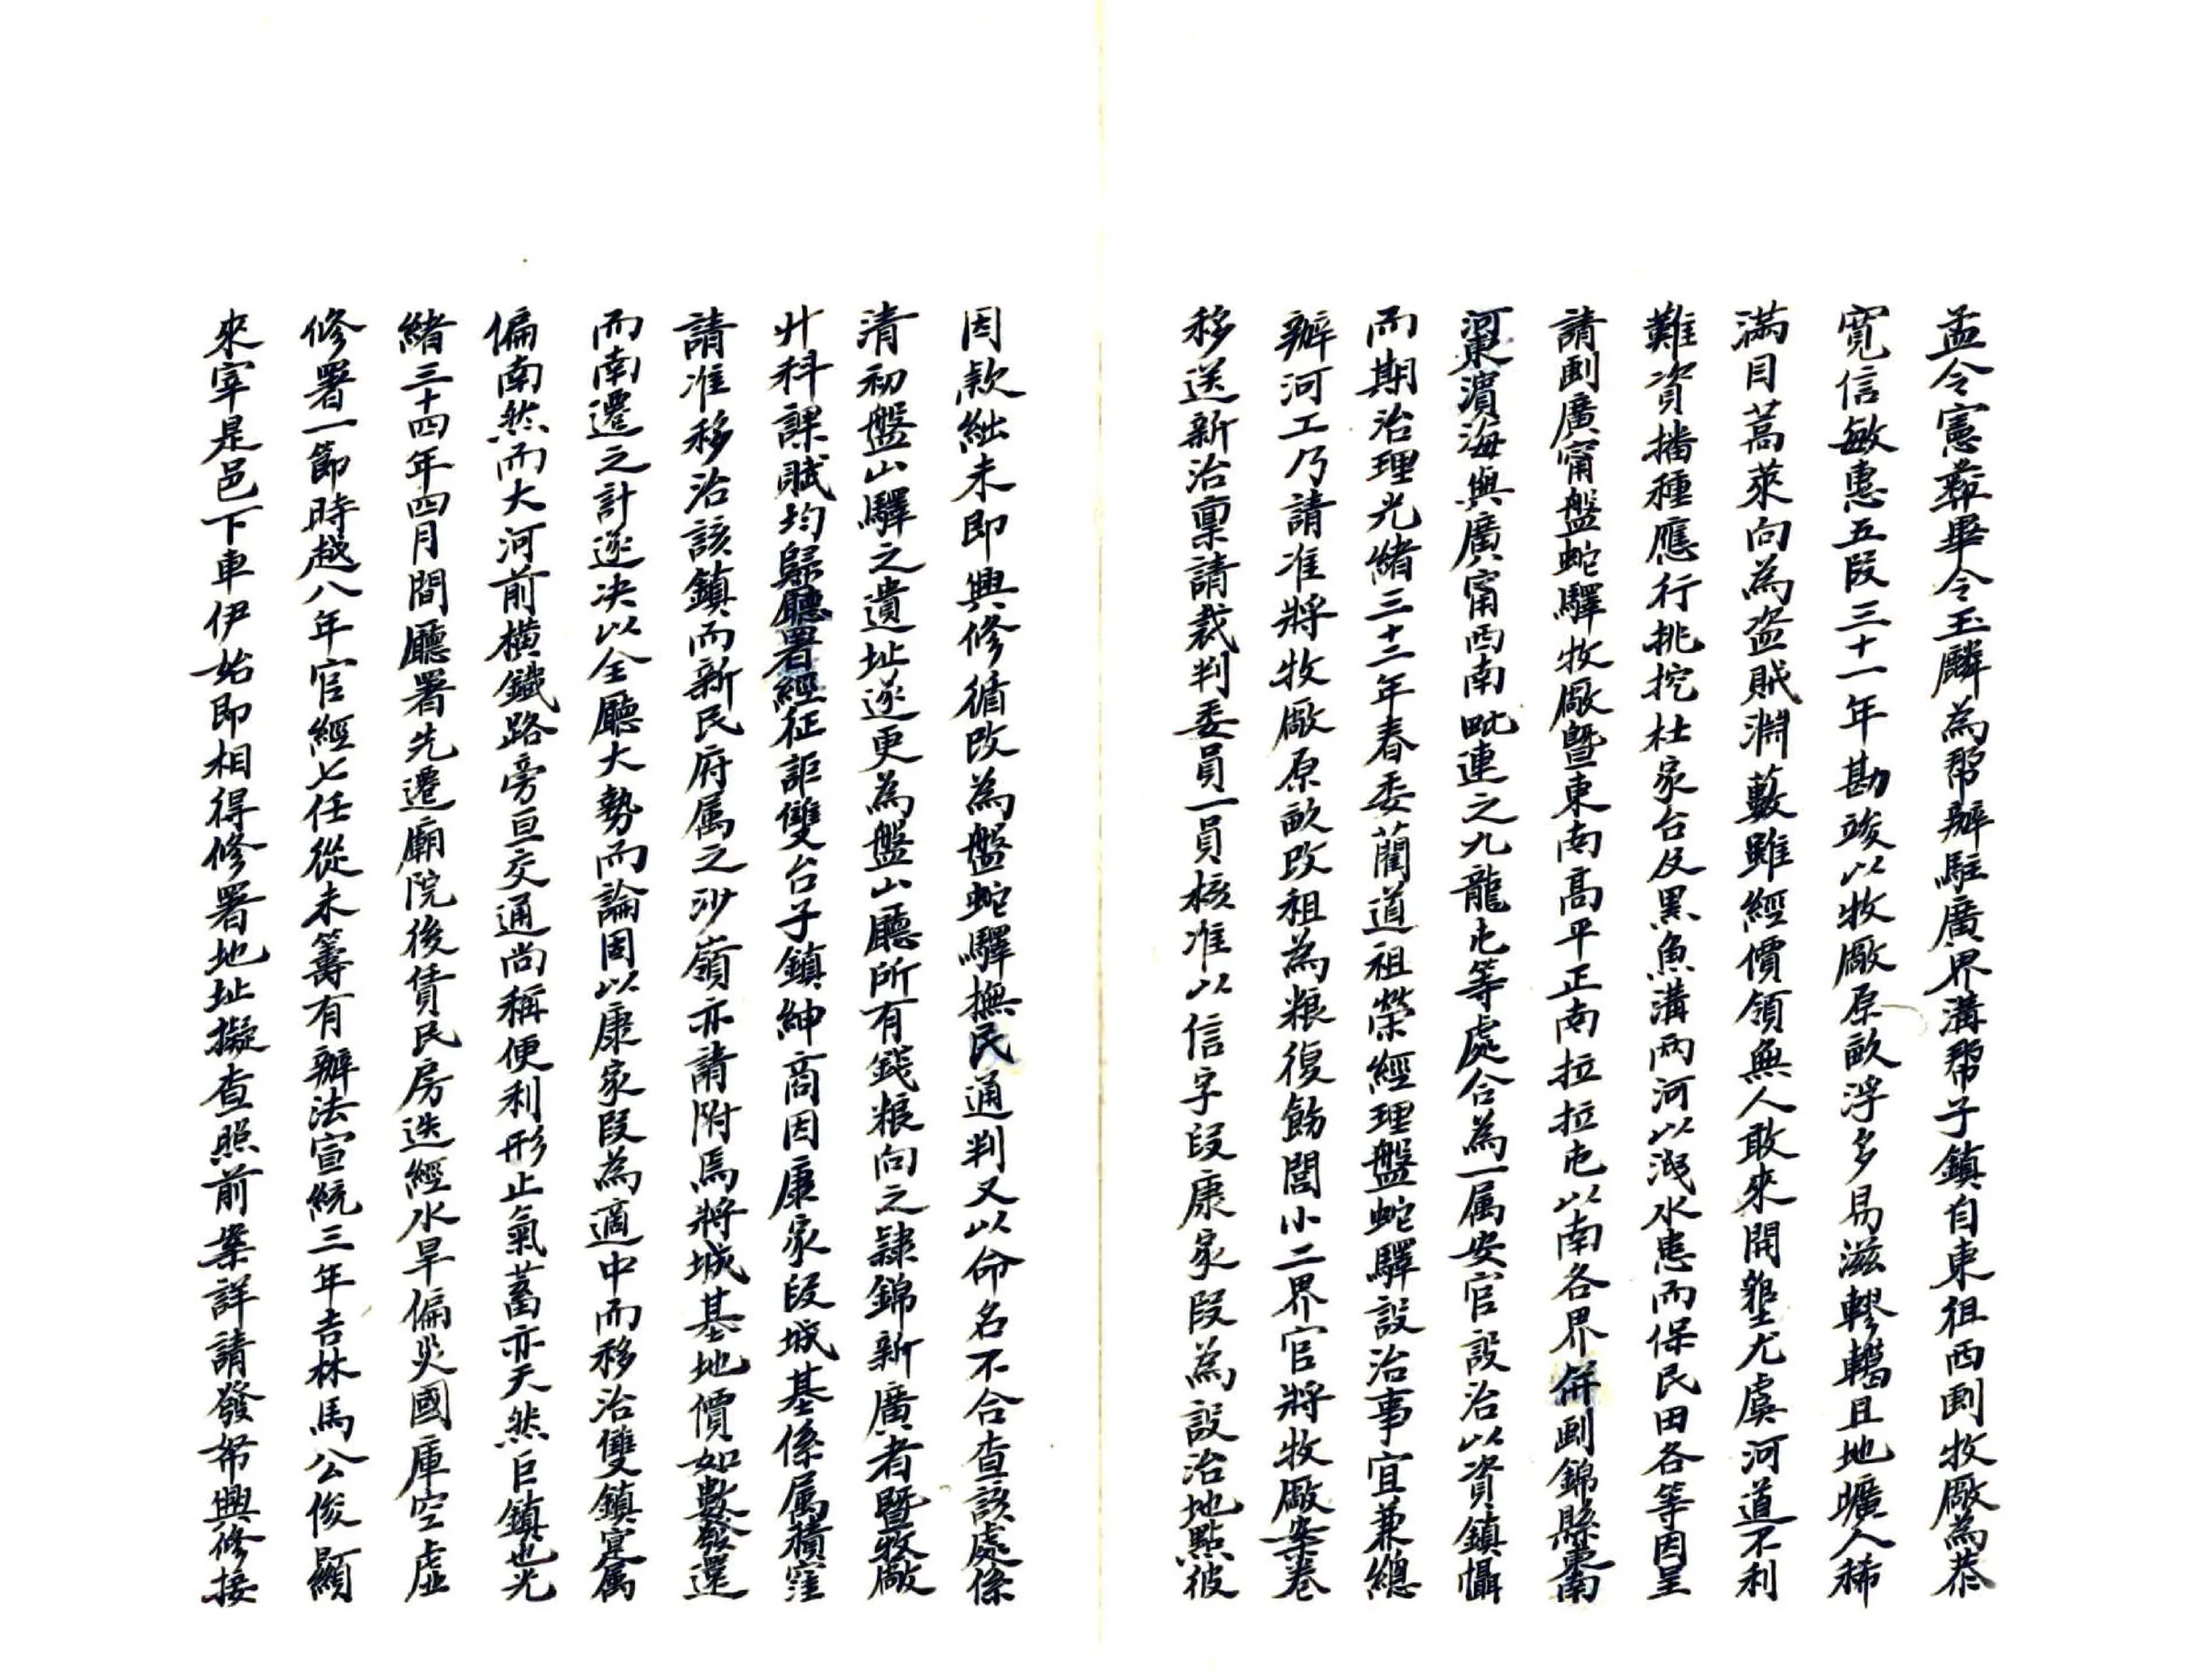 孟令憲彝畢令玉麟為帮辦駐廣界溝帮子鎮自東徂西劃牧廠為恭
寬信敏惠五段三十一年勘竣以牧廠原畝浮多易滋轇轕且地曠人稀
滿目蒿萊向為盜賊淵藪雖經價領無人敢來開墾尤虞河道不利
難資播種應行挑挖杜家台及黑魚溝兩河以洩水患而保民田各等因呈
請劃廣甯盤蛇驛牧廠暨東南高平正南拉拉屯以南各界併劃錦縣東南
河東濱海與廣甯西南毗連之九龍屯等處合為一属安官設治以資鎮懾
而期治理光緒三十二年春委藺道祖榮經理盤蛇驛設治事宜兼總
辦河工乃請准將牧廠原畝改租為粮復飭閭小二界官將牧廠案卷
移送新治稟請裁判委員一員核准以信字段康家段為設治地點彼
因款絀未即興修循改為盤蛇驛撫民通判又以命名不合查該處係
清初盤山驛之遺址遂更為盤山廳所有錢粮向之隸錦新廣者暨牧廠
廾科課賦均歸廳署經征詎雙台子鎮紳商因康家段城基係属積窪
請准移治該鎮而新民府属之沙嶺亦請附焉將城基地價如數發還
而南遷之計遂决以全廳大勢而論固以康家段為適中而移治雙鎮寔属
偏南然而大河前橫鐵路旁亘交通尚稱便利形止氣蓄亦天然巨鎮也光
緒三十四年四月間廳署先遷廟院後賃民房迭經水旱偏災國庫空虛
修署一節時越八年官經七任從未籌有辦法宣統三年吉林馬公俊顯
來宰是邑下車伊始即相得修署地址擬查照前案詳請發帑興修接